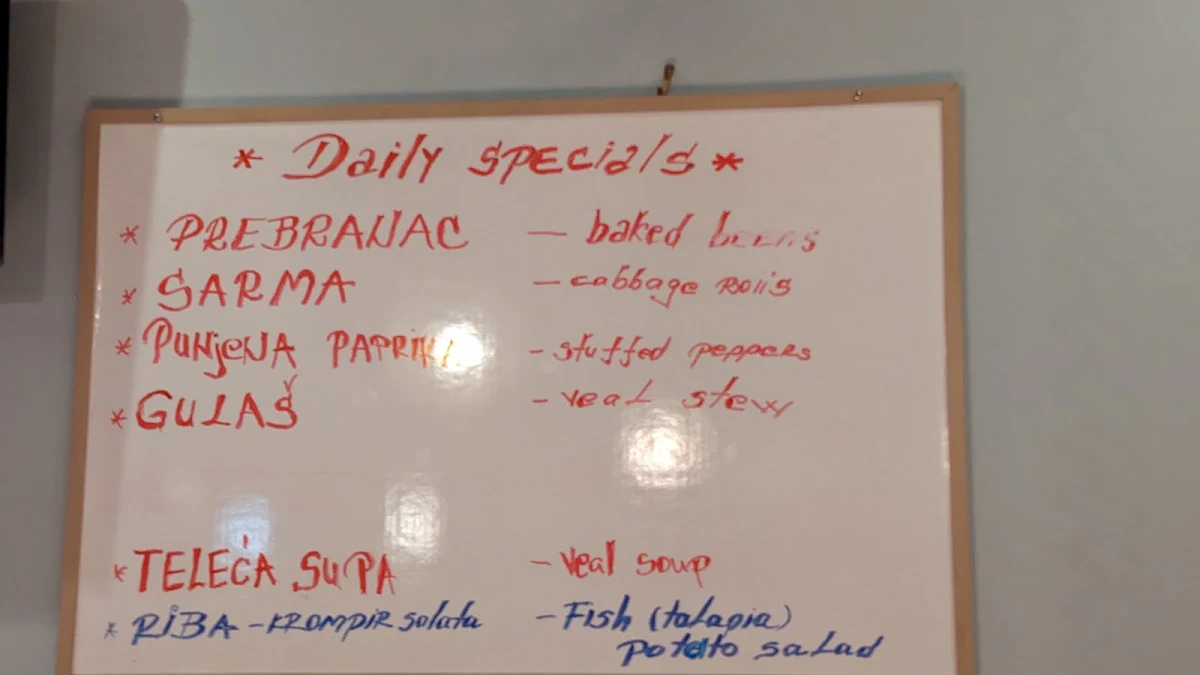 * Daily SPECiAlS *
* PREBRANAC – baked beens
* SARMA – cabbage Rolls
* PUNjeNA PAPRIKA – stuffed peppers
* GULAŠ – veal stew
* TELEĆA SUPA – veal soup
* RIBA – KROMPIR salata – Fish (talapia)
potato salad